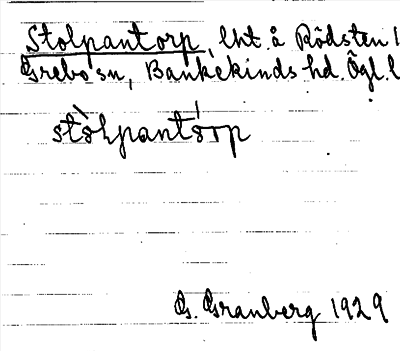 Stolpantorp, lht. å Rödsten 1
Grebo sn, Bankekinds hd. Ögl. l
stòlpantórp
G. Granberg 1929